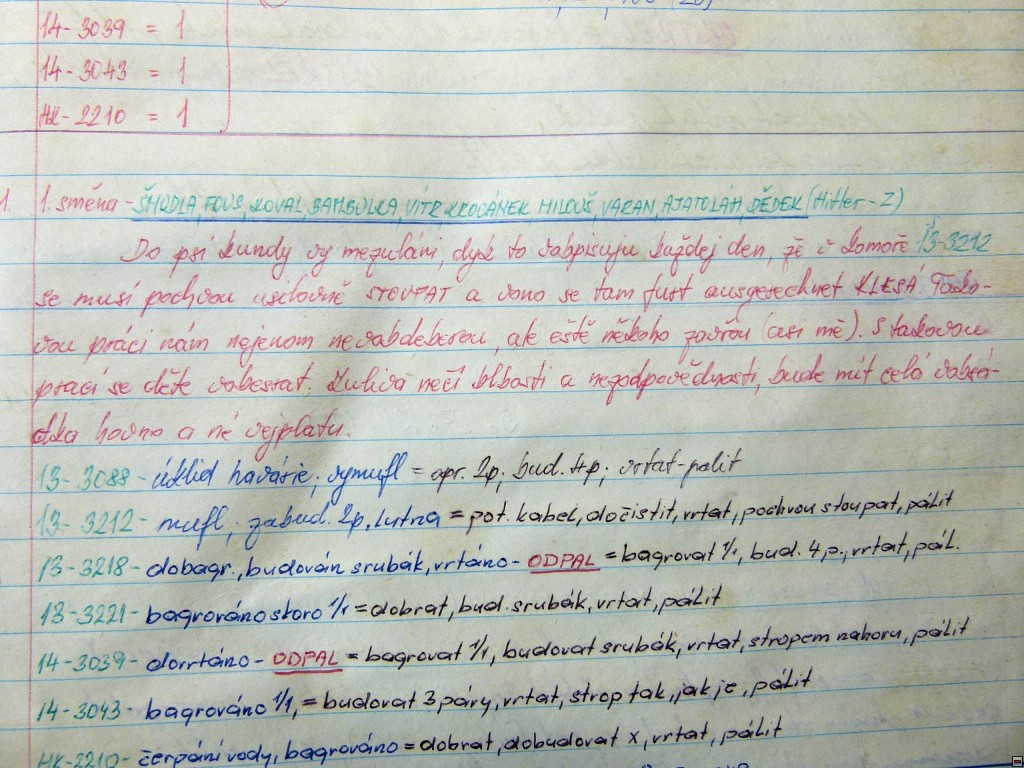 14-3039 = 1
14-3043 = 1
HK-2210 = 1
1. 1. směna - ŠMUDLA, FOUS, KOVAL, BAMBULKA, VÍTR, KROCÁNEK MILOUŠ, VARAN, AJATOLÁH, DĚDEK (Hitler-Z)
Do psí kundy vy mezuláni, dyk to vobpisuju každej den, že v komoře 13-3212
se musí pochvou usilovně STOUPAT a vono se tam furt ausgerechnet KLESÁ. Tako-
vou práci nám nejenom nevobdeberou, ale eště někoho zavřou (asi mě). S takovou
prací se děte vobesrat. Kulivá nečí blbosti a nezodpovědnosti, bude mít celá vobsá-
dka hovno a né vejplatu.
13-3088 - úklid havárie, vymufl = opr. 2p, bud. 4p, vrtat-pálit
13-3212 - mufl, zabud. 2p, lutna = pot. kabel, dočistit, vrtat, pochvou stoupat, pálit
13-3218 - dobagr., budován srubák, vrtáno - ODPAL = bagrovat 1/1, bud. 4p., vrtat, pál.
13-3221 - bagrováno skoro 1/1 = dobrat, bud. srubák, vrtat, pálit
14-3039 - dovrtáno - ODPAL = bagrovat 1/1, budovat srubák, vrtat, stropem nahoru, pálit
14-3043 - bagrováno 1/1, = budovat 3 páry, vrtat, strop tak, jak je, pálit
HK-2210 - čerpání vody, bagrováno = dobrat, dobudovat x, vrtat, pálit